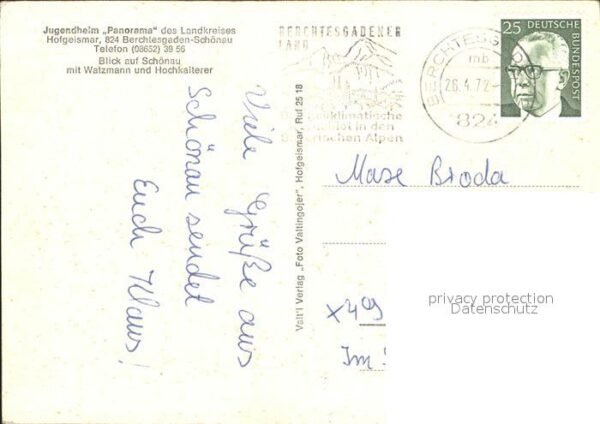 Jugendheim „Panorama" des Landkreises
Hofgeismar, 824 Berchtesgaden-Schönau
Telefon (08652) 39 56
Blick auf Schönau
mit Watzmann und Hochkalterer
Viele Grüße aus
Schönau sendet
Euch Klaus!
Valt'l Verlag „Foto Valtingojer", Hofgeismar, Ruf 25 18
BERCHTESGADENER
LAND
in den
Alpen
BERCHTESG
mb
26.4.72
824
25 DEUTSCHE
BUNDESPOST
Broda
x49
Im
privacy protection
Datenschutz